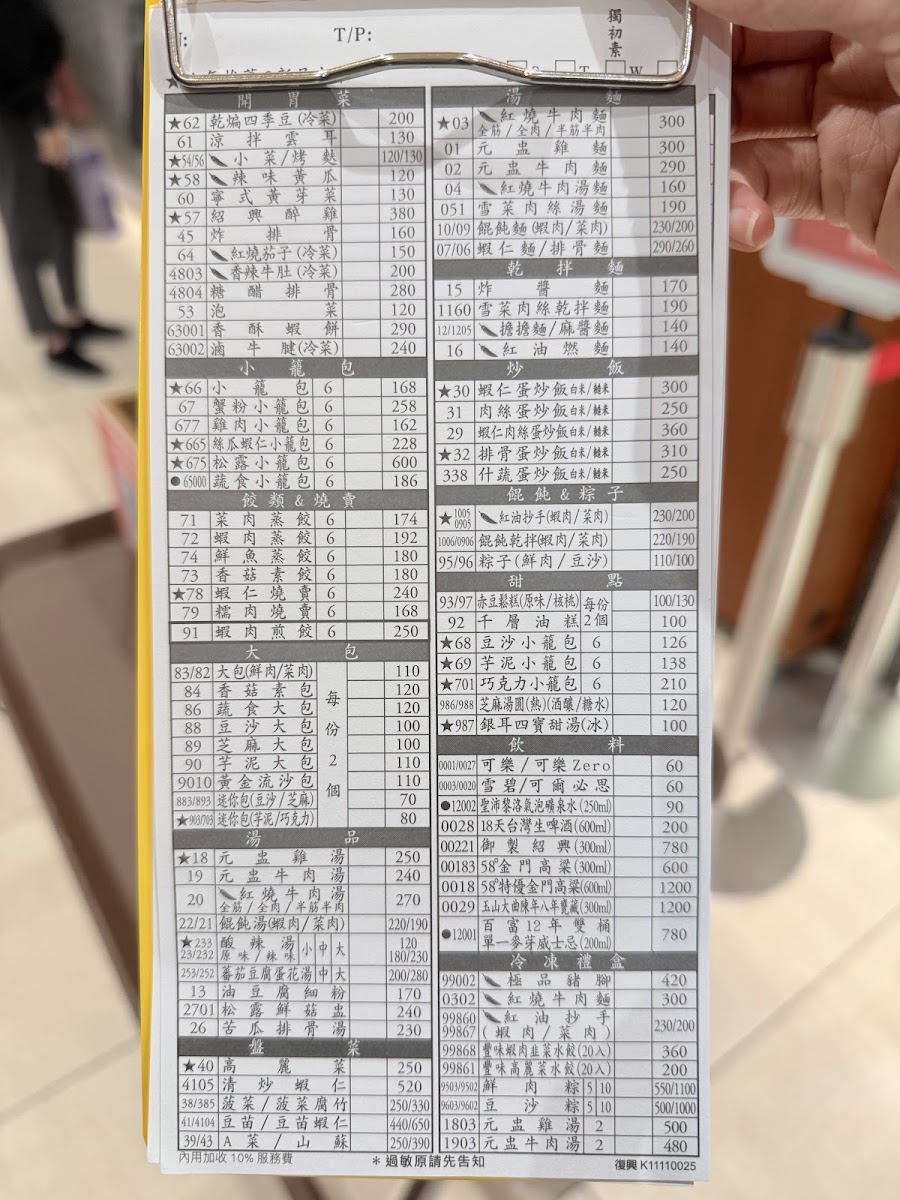 T/P:
獨初素
開胃菜
★62 乾煸四季豆(冷菜) 200
61 涼拌雲耳 130
★54/56 小菜/烤麩 120/130
★58 辣味黃瓜 120
60 寧式黃芽菜 130
★57 紹興醉雞 380
45 炸排骨 160
64 紅燒茄子(冷菜) 150
4803 香辣牛肚(冷菜) 200
4804 糖醋排骨 280
53 泡菜 120
63001 香酥蝦餅 290
63002 滷牛腱(冷菜) 240
小籠包
★66 小籠包 6 168
67 蟹粉小籠包 6 258
677 雞肉小籠包 6 162
★665 絲瓜蝦仁小籠包 6 228
★675 松露小籠包 6 600
●65000 蔬食小籠包 6 186
餃類&燒賣
71 菜肉蒸餃 6 174
72 蝦肉蒸餃 6 192
74 鮮魚蒸餃 6 180
73 香菇素餃 6 180
★78 蝦仁燒賣 6 240
79 糯肉燒賣 6 168
91 蝦肉煎餃 6 250
大包
每份2個
83/82 大包(鮮肉/菜肉) 110
84 香菇素包 120
86 蔬食大包 120
88 豆沙大包 100
89 芝麻大包 100
90 芋泥大包 110
9010 黃金流沙包 110
883/893 迷你包(豆沙/芝麻) 70
★903/703 迷你包(芋泥/巧克力) 80
湯品
★18 元盅雞湯 250
19 元盅牛肉湯 240
20 紅燒牛肉湯 270
全筋/全肉/半筋半肉
22/21 餛飩湯(蝦肉/菜肉) 220/190
★233 酸辣湯 小中大 120
23/232 原味/辣味 180/230
253/252 蕃茄豆腐蛋花湯 中大 200/280
13 油豆腐細粉 170
2701 松露鮮菇盅 240
26 苦瓜排骨湯 230
盤菜
★40 高麗菜 250
4105 清炒蝦仁 520
38/385 菠菜/菠菜腐竹 250/330
41/4104 豆苗/豆苗蝦仁 440/650
39/43 A菜/山蘇 250/390
內用加收 10% 服務費
湯麵
★03 紅燒牛肉麵 300
全筋/全肉/半筋半肉
01 元盅雞麵 300
02 元盅牛肉麵 290
04 紅燒牛肉湯麵 160
051 雪菜肉絲湯麵 190
10/09 餛飩麵(蝦肉/菜肉) 230/200
07/06 蝦仁麵/排骨麵 290/260
乾拌麵
15 炸醬麵 170
1160 雪菜肉絲乾拌麵 190
12/1205 擔擔麵/麻醬麵 140
16 紅油燃麵 140
炒飯
★30 蝦仁蛋炒飯 白米/糙米 300
31 肉絲蛋炒飯 白米/糙米 250
29 蝦仁肉絲蛋炒飯 白米/糙米 360
★32 排骨蛋炒飯 白米/糙米 310
338 什蔬蛋炒飯 白米/糙米 250
餛飩&粽子
★1005 0905 紅油抄手(蝦肉/菜肉) 230/200
1006/0906 餛飩乾拌(蝦肉/菜肉) 220/190
95/96 粽子(鮮肉/豆沙) 110/100
甜點
93/97 赤豆鬆糕(原味/核桃) 每份2個 100/130
92 千層油糕 100
★68 豆沙小籠包 6 126
★69 芋泥小籠包 6 138
★701 巧克力小籠包 6 210
986/988 芝麻湯圓(熱)(酒釀/糖水) 120
★987 銀耳四寶甜湯(冰) 100
飲料
0001/0027 可樂/可樂Zero 60
0003/0020 雪碧/可爾必思 60
●12002 聖沛黎洛氣泡礦泉水(250ml) 90
0028 18天台灣生啤酒(600ml) 200
00221 御製紹興(300ml) 780
00183 58°金門高粱(300ml) 600
0018 58°特優金門高粱(600ml) 1200
0029 玉山大曲陳年八年甕藏(300ml) 1200
●12001 百富12年雙桶 780
單一麥芽威士忌(200ml)
冷凍禮盒
99002 極品豬腳 420
0302 紅燒牛肉麵 300
99860 紅油抄手 230/200
99867 (蝦肉/菜肉)
99868 豐味蝦肉韭菜水餃(20入) 360
99861 豐味高麗菜水餃(20入) 200
9503/9502 鮮肉粽 5 10 550/1100
9603/9602 豆沙粽 5 10 500/1000
1803 元盅雞湯 2 500
1903 元盅牛肉湯 2 480
＊過敏原請先告知
復興 K11110025